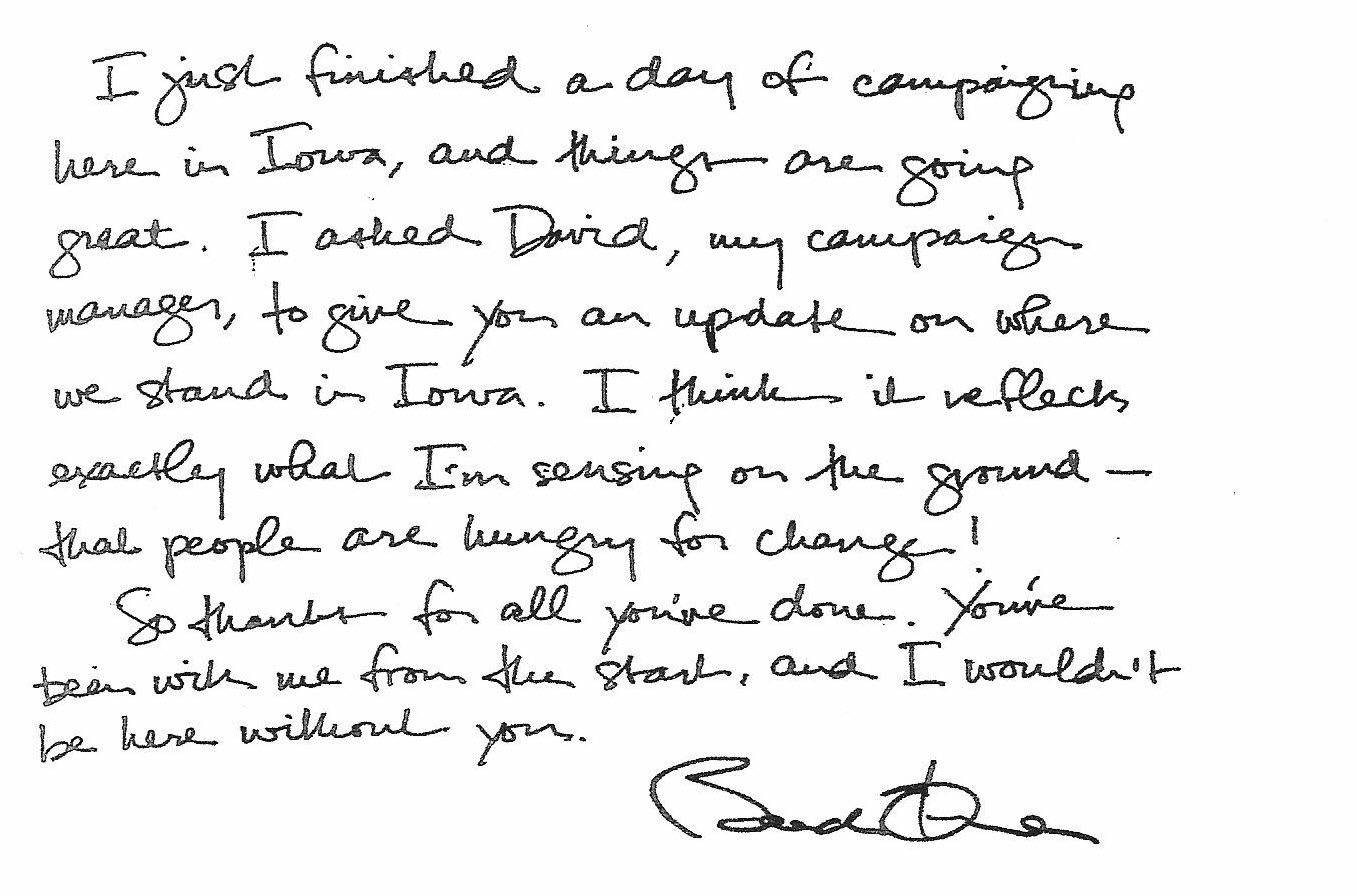 I just finished a day of campaigning
here in Iowa, and things are going
great. I asked David, my campaign
manager, to give you an update on where
we stand in Iowa. I think it reflects
exactly what I'm sensing on the ground —
that people are hungry for change!
So thanks for all you've done. You've
been with me from the start, and I wouldn't
be here without you.